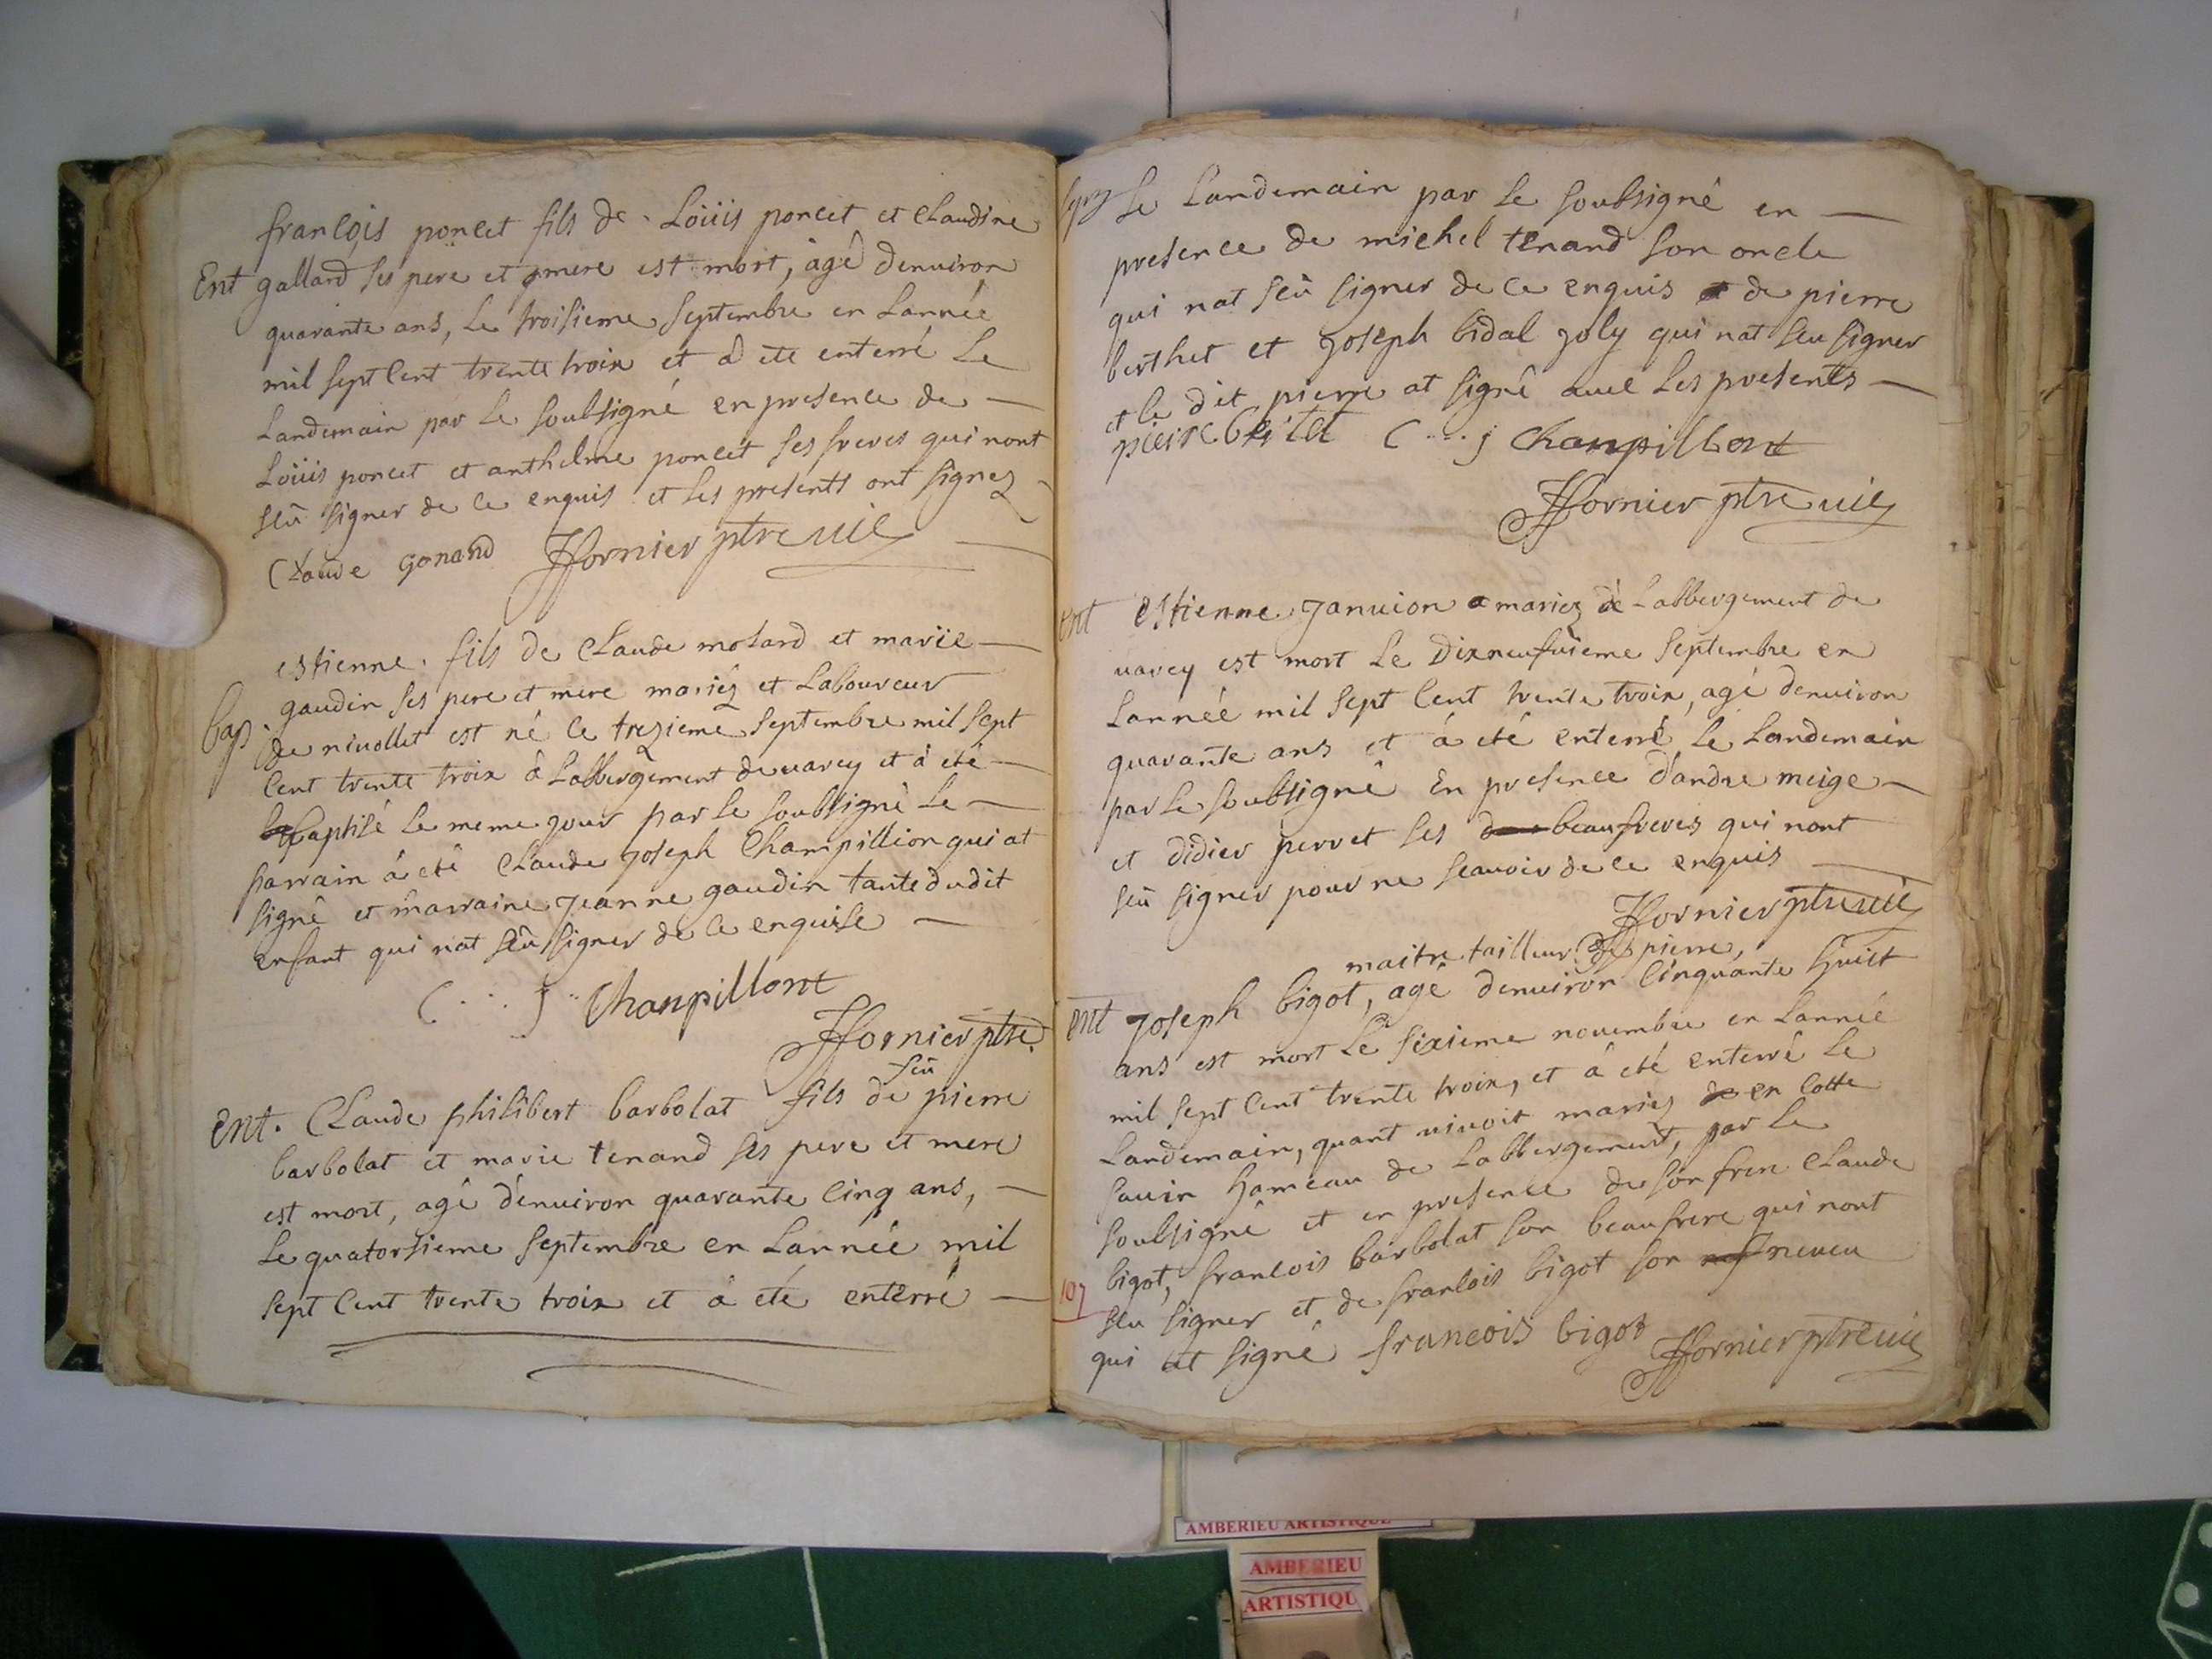 francois poncet fils de Loüis poncet et claudine
Ent gallard ses pere et mere est mort, agé denuiron
quarante ans, Le troisieme septembre en Lannée
mil sept cent trente troix et a ete enterré Le
Landemain par Le soubsigné en presence de
Loüis poncet et anthelme poncet ses freres qui nont
sceu signer de ce enquis et les presents ont signez
Claude gonand JFornier ptre uic
estienne fils de claude molard et marie
gaudin ses pere et mere mariez et Laboureur
bap. de niuollet est né le trezieme septembre mil sept
cent trente troix à Labbergement de uarey et à été
baptisé Le meme jour par Le soubsigné Le
parrain à été claude joseph Champillion qui at
signé et marraine jeanne gaudin tante dudit
enfant qui nat sceu signer de ce enquise
C J Chanpillont
JFornier ptre
Ent. Claude philibert barbolat fils de feu pierre
barbolat et marie tenand ses pere et mere
est mort, agé denuiron quarante cinq ans,
Le quatorsieme septembre en Lannée mil
sept cent trente troix et à eté enterré
Le Landemain par Le soubsigné en
presence de michel tenand son oncle
qui nat sceu signer de ce enquis de pierre
berthet et joseph bidal joly qui nat sceu signer
et le dit pierre at signé auec Les presents
pierre C J Chanpillont
JFornier ptre uic
ent Estienne januion mariez de Labbergement de
uarey est mort Le dixneufuieme septembre en
Lannéé mil sept cent trente troix, agé denuiron
quarante ans et á eté enterré Le Landemain
par Le soubsigné En presence dandre meige
et didier perret ses beaufreres qui nont
sceu signer pour ne scauoir de ce enquis
JFornier ptre uic
maitre tailleur de pierre,
ent joseph bigot, agé denuiron cinquante huict
ans est mort Le sixieme nouembre en Lannéé
mil sept cent trente troix, et à eté enterré Le
Landemain, quant uiuoit mariez en cotte
sauin hameau de Labbergement, par Le
soubsigné et en presence de son frere claude
bigot, francois barbolat son beaufrere qui nont
107 sceu signer et de francois bigot son neueu
qui at signé francois bigot JFornier ptre uic
AMBERIEU ARTISTIQUE
AMBERIEU
ARTISTIQU